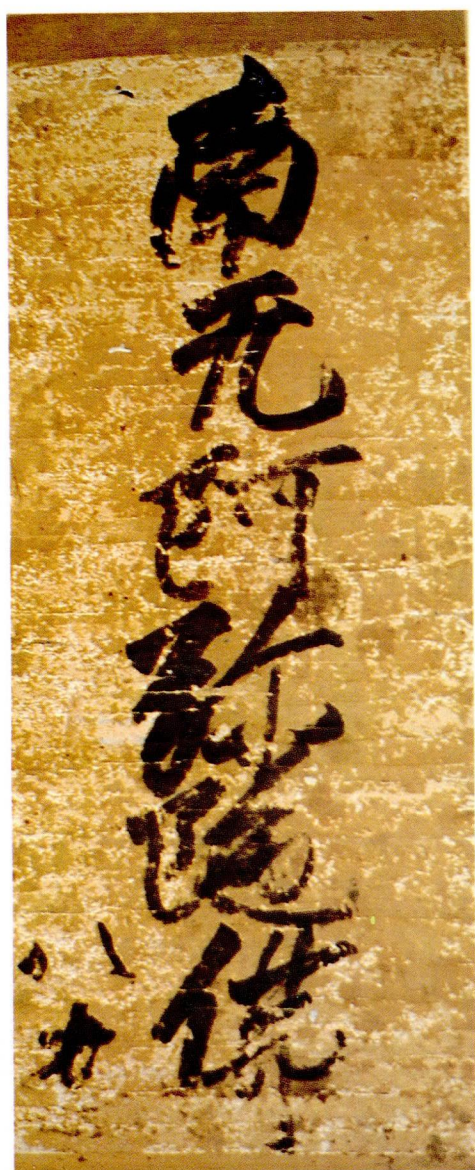 南无阿弥陀佛
八